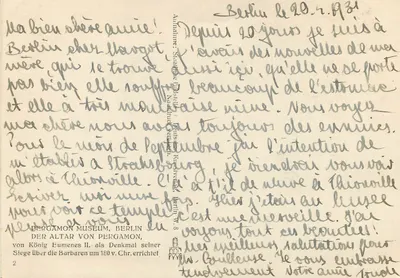 Berlin le 29. 4. 1931
Ma bien chère amie!
Depuis 20 jours je suis à
Berlin chez Margot
j'avais des nouvelles de ma
mère qui se trouve aussi ici, qu'elle ne se porte
pas bien, elle souffre beaucoup de l'estomac
et elle a très mauvaise mine. Vous voyez
ma chère nous avons toujours des ennuies.
Pour le mois de Septembre j'ai l'intention de
m'établir à Strasbourg, je viendrai vous voir
alors à Thionville. Qu'y a-t-il de neuve à Thionville
Ecrivez moi
Hier j'étais au Musée
pour voir ce temple
c'est une merveille. J'ai
pensé à vous en
voyant tout en beautés!
Mes meilleurs salutation pour
Je vous embrasse
tendrement votre amie
PERGAMON MUSEUM, BERLIN
DER ALTAR VON PERGAMON,
von König Eumenes II. als Denkmal seiner
Siege über die Barbaren um 180 v. Chr. errichtet
2